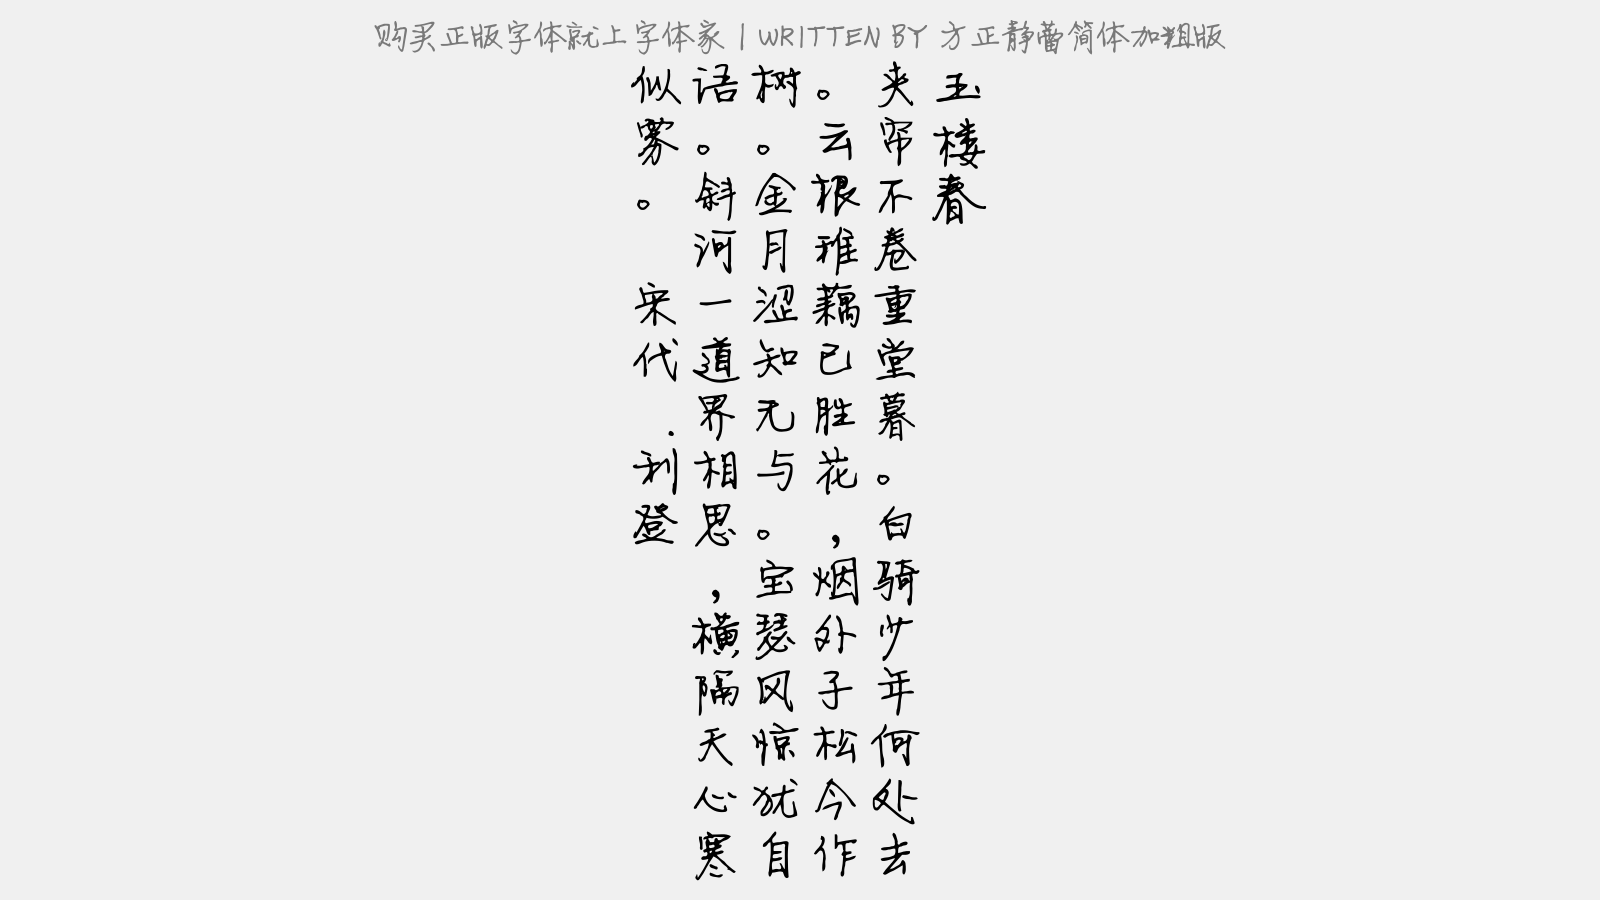 购买正版字体就上字体家 | WRITTEN BY 方正静蕾简体加粗版
玉楼春
夹帘不卷重堂暮。白骑少年何处去
。云根稚藕已胜花，烟外子松今作
树。金月涩知无与。宝瑟风惊犹自
语。斜河一道界相思，横隔天心寒
似雾。 宋代.利登